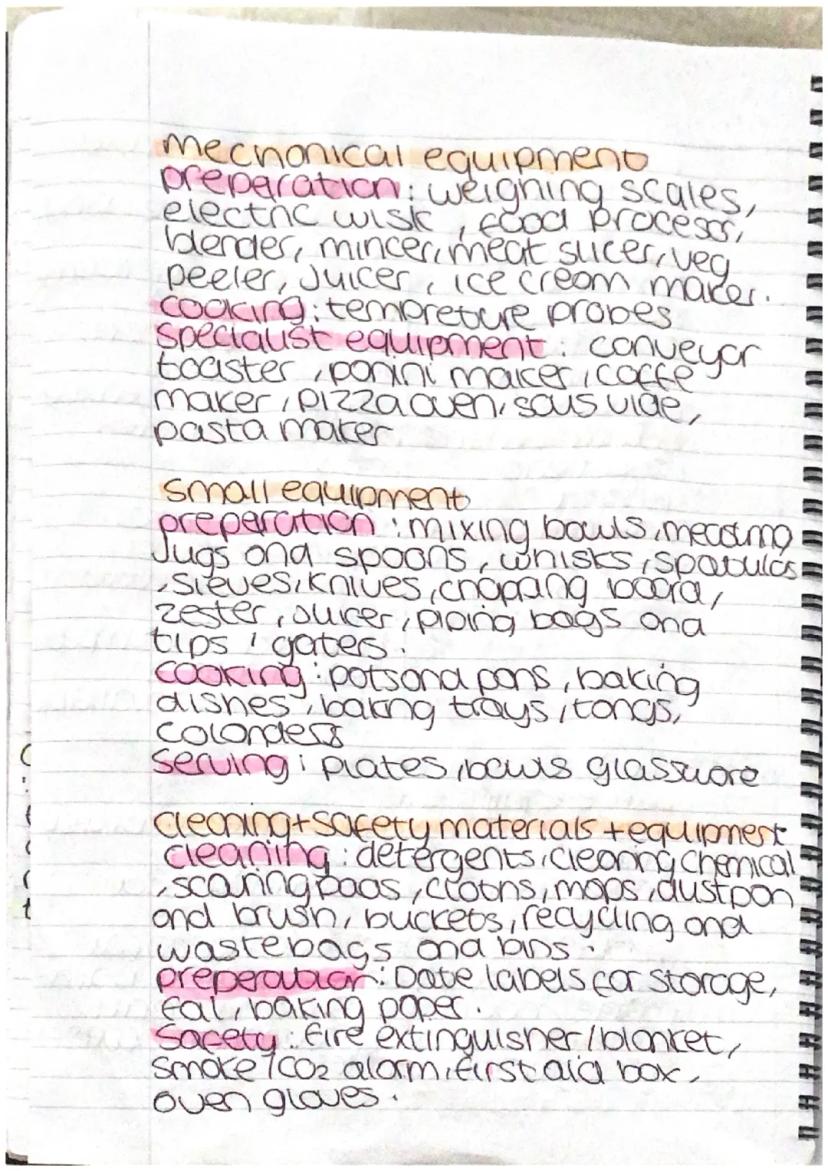 mechanical equipment
preparation: weighing scales,
electric wisk, food procesor,
blender, mincer, meat slicer, veg
peeler, juicer, ice cream maker.
cooking: tempreture probes
specialist equipment: conveyor
toaster, panini maker, coffe
maker, pizza oven, sous vide,
pasta maker
small equipment
preparation: mixing bowls, measuring
Jugs and spoons, whisks, spatulas
, sieves, knives, chopping board,
zester, juicer, piping bags and
tips, gaters.
cooking: pots and pans, baking
dishes, baking trays, tongs,
colanders
serving: plates, bowls glassware
cleaning + safety materials + equipment
cleaning: detergents, cleaning chemical
, scouring pads, cloths, mops, dustpan
and brush, buckets, recycling and
waste bags and bins.
preperation: Date labels for storage,
foil, baking paper.
Safety: fire extinguisher/blanket,
smoke/CO2 alarm, first aid box,
oven gloves.